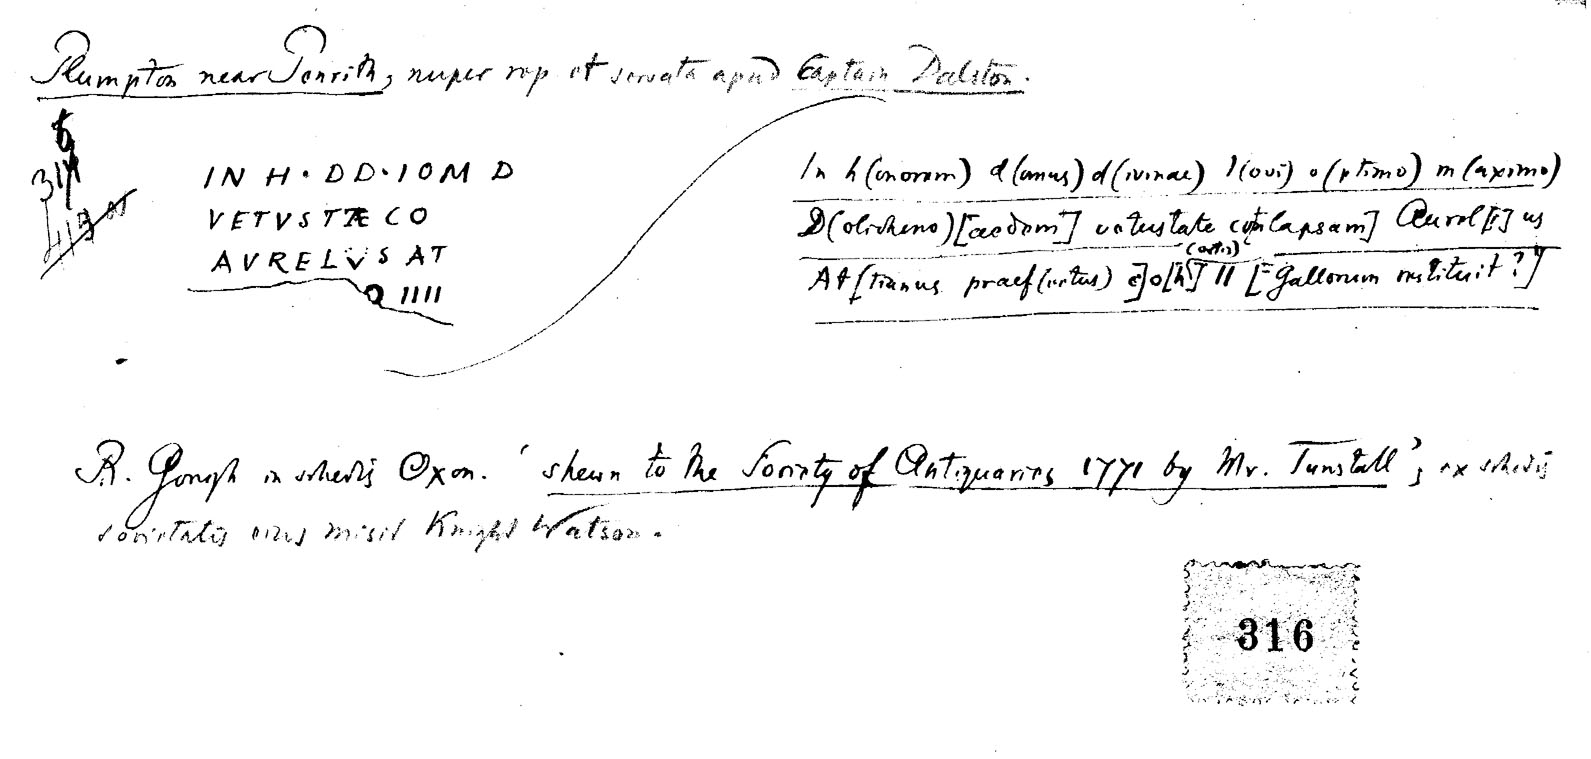 Plumpton near Penrith, nuper rep et servata apud Captain Dalston.
317
413
IN H · DD · IOM D
VETVSTÆ CO
AVRELVS AT
O IIII
In h(onorem) d(omus) d(ivinae) I(ovi) o(ptimo) m(aximo)
D(olicheno) [aedem] vetustate conlapsam] Aurel[i]us
At[tianus praef(ectus) c]o[h](ortis) II [Gallorum restituit?]
R. Gough in schedis Oxon. ' shewn to the Society of Antiquaries 1771 by Mr. Tunstall'; ex schedis
societatis eius misit Knight Watson.
316